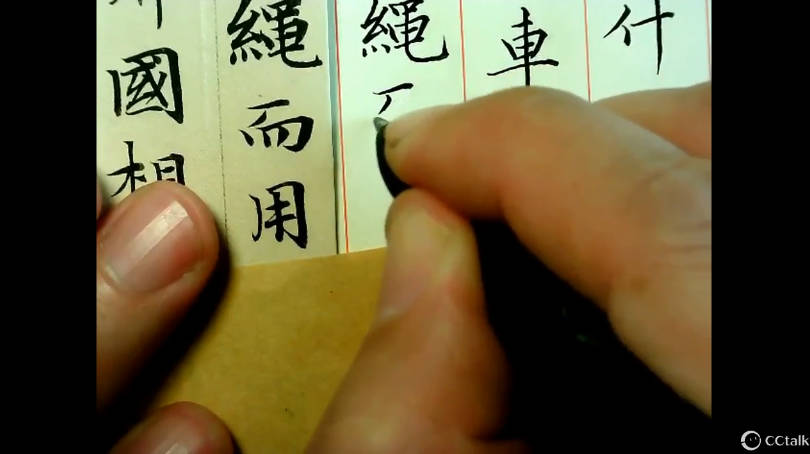 什
車
繩
繩而用
國相
CCtalk